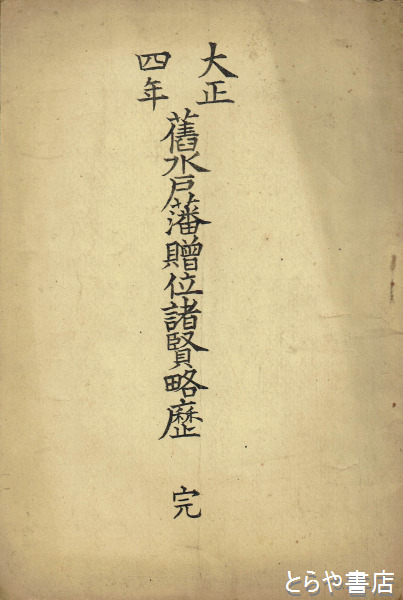 大正
四年
舊水戸藩贈位諸賢略歷 完
とらや書店